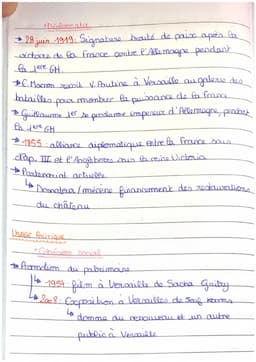 • Diplomatie
→ 28 juin 1919: Signature traité de paix après la
victoire de la France contre l'Allemagne pendant
la 1ère GM
→ E. Macron reçoit V. Poutine à Versaille au galerie des
batailles pour montrer la puissance de la France
→ Guillaume 1er se proclame empereur d'Allemagne, pendant
la 1ère GM
→ 1855: alliance diplomatique entre la France sous
Nap. III et l'Angleterre sous la reine Victoria
→ Partenariat actuelle
↳ Donnateurs/mécène financement des restaurations
du château
Usage Politique:
• Cohésion social
→ Promotion du patrimoine
↳ 1954: film à Versaille de Sacha Guitry
↳ 2008: Exposition à Versailles de Jeff Koons
↳ donne du renouveau et un autre
public à Versaille